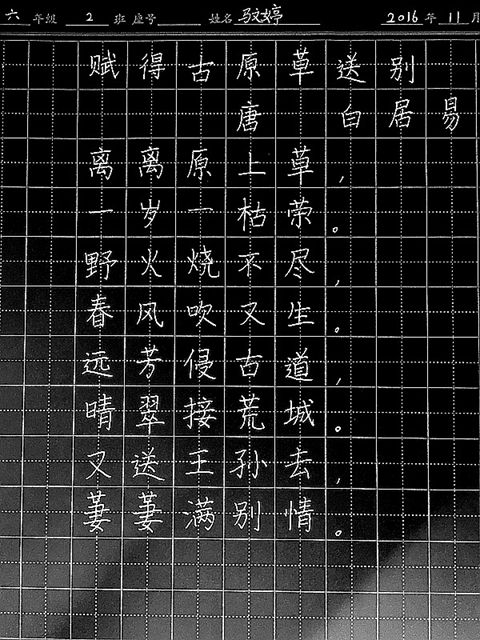 六 年级 2 班 座号 姓名 驭婷 2016 年 11 月
赋得古原草送别
唐 白居易
离离原上草,
一岁一枯荣。
野火烧不尽,
春风吹又生。
远芳侵古道,
晴翠接荒城。
又送王孙去,
萋萋满别情。